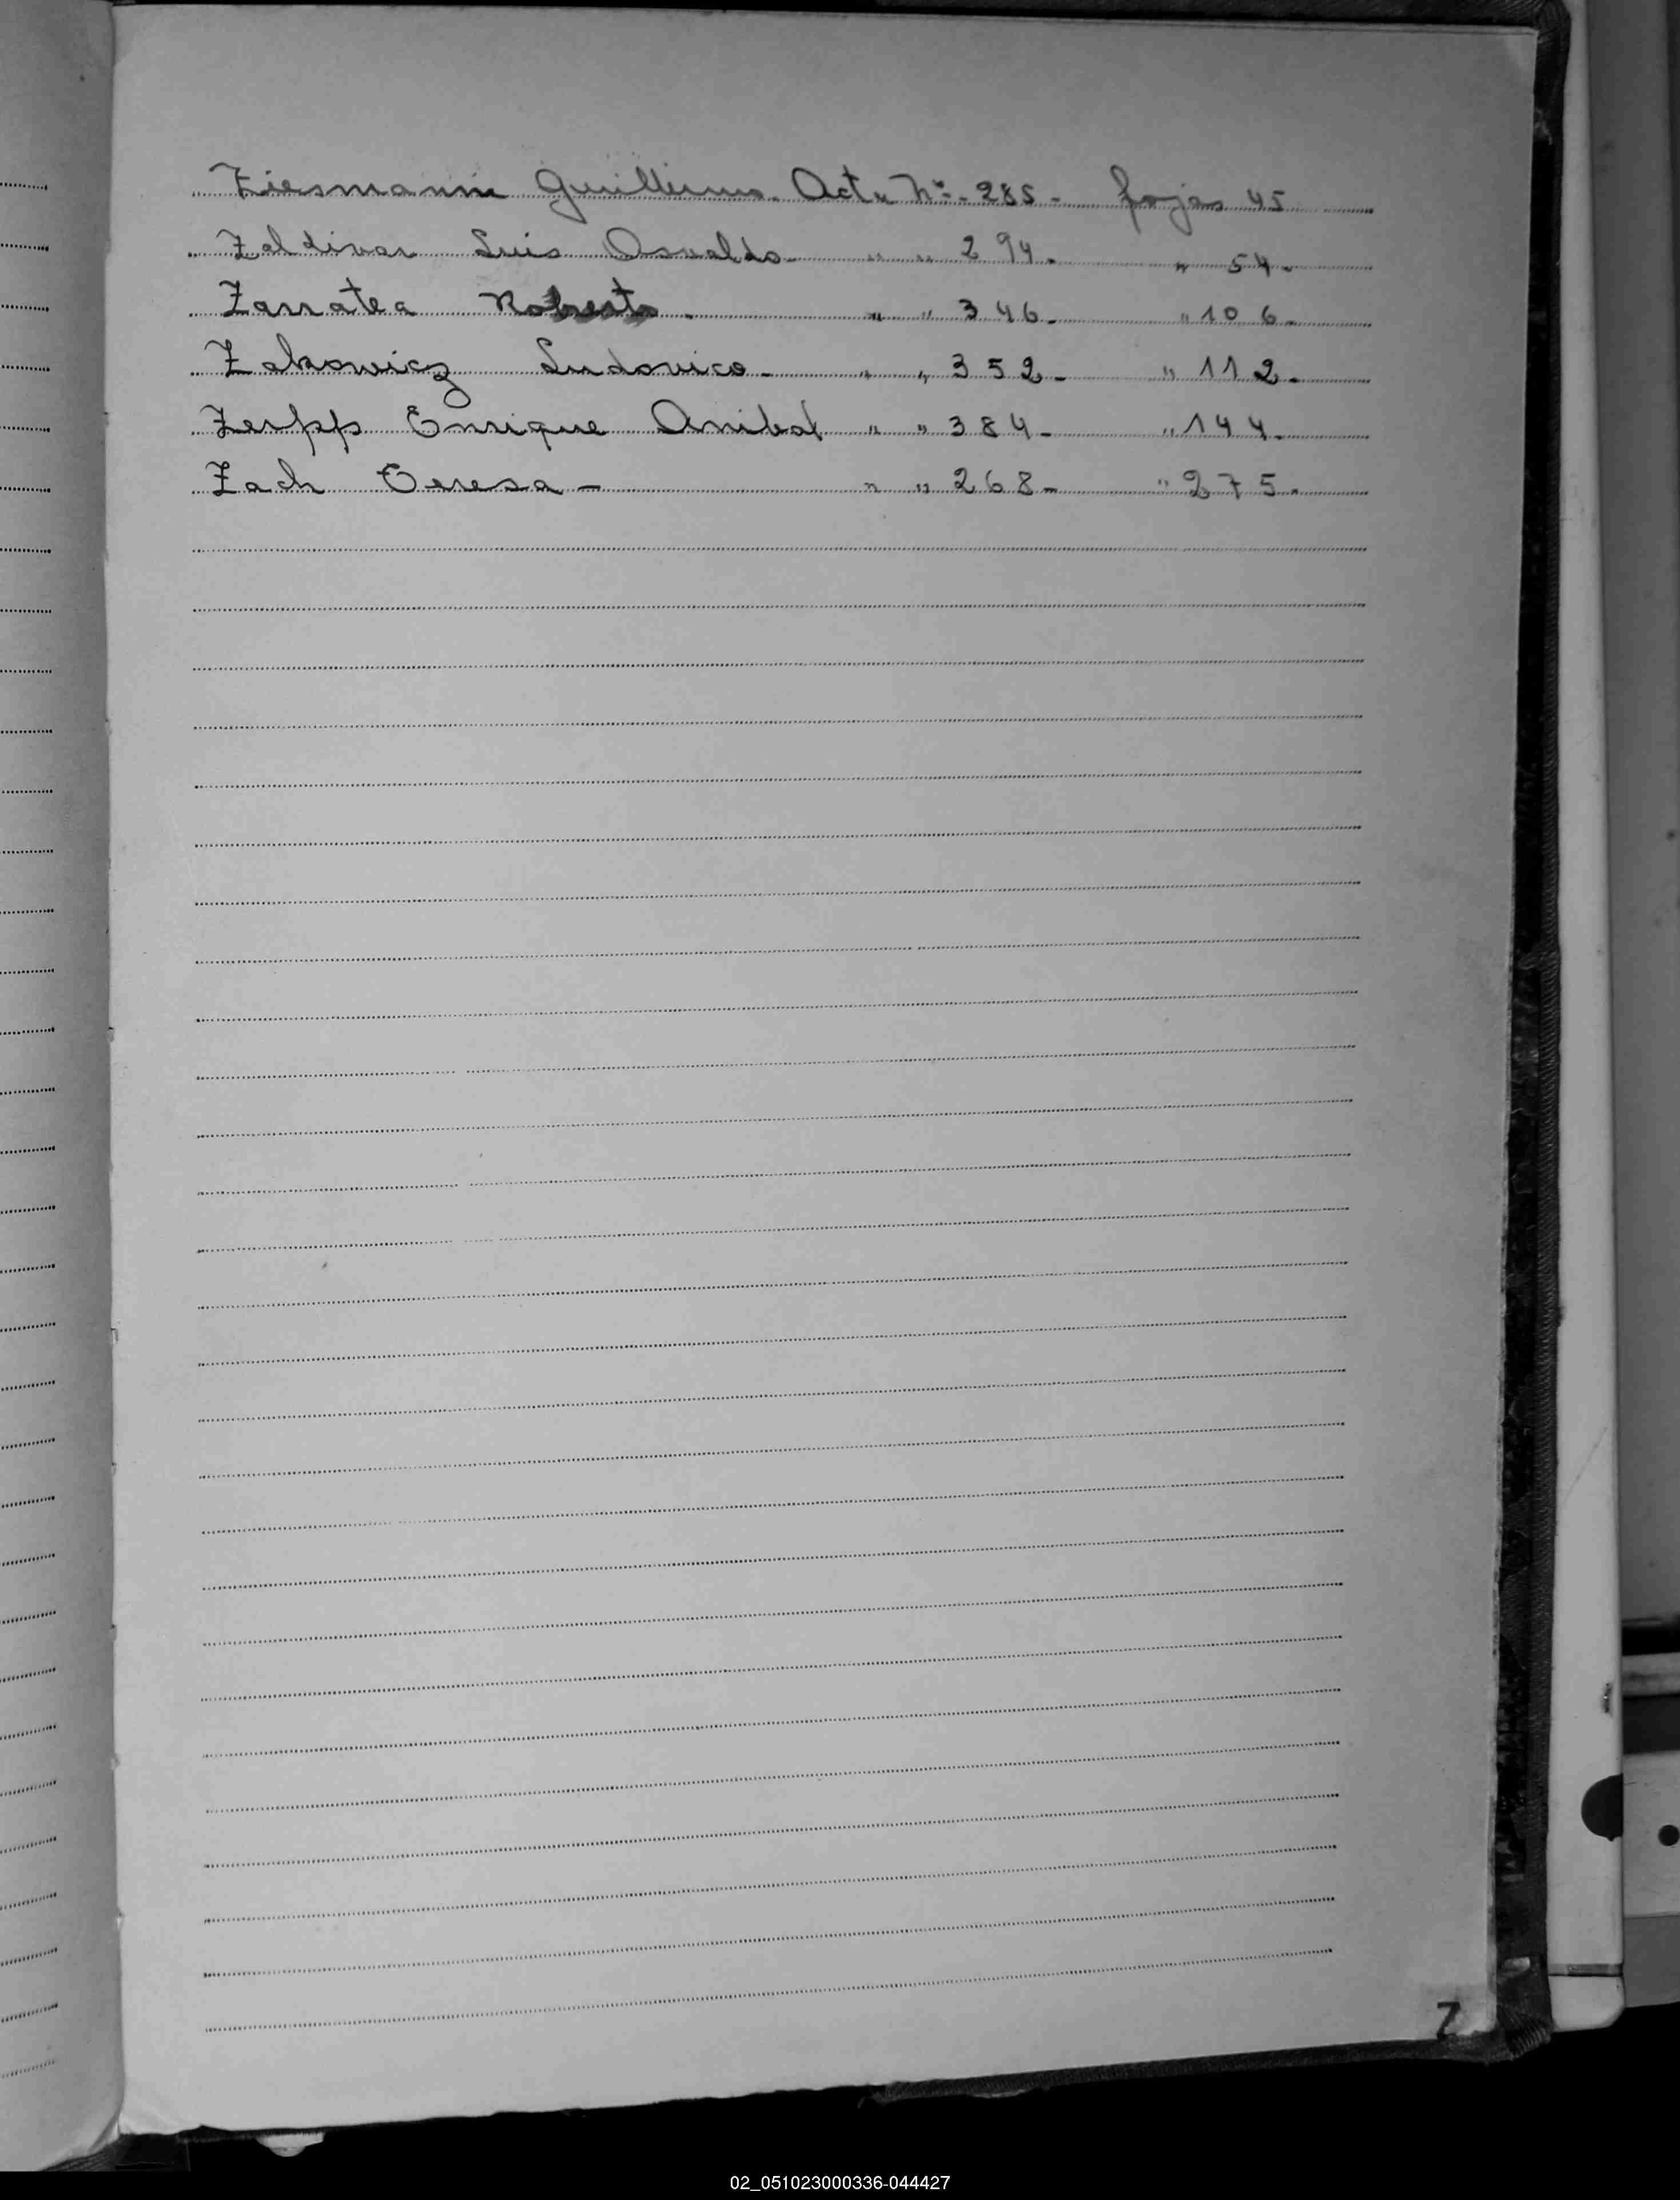 Ziesmann Guillermo. Acta Nº. 285 - fojas 45
Zaldivar Luis Osvaldo - " " 294. " 54.
Zarratea Roberto. " " 346. " 106.
Zakowicz Ludovico - " " 352 - " 112.
Zerpp Enrique Anibal " " 384 - " 144.
Zach Teresa - " " 268 - " 275.
Z
02_051023000336-044427